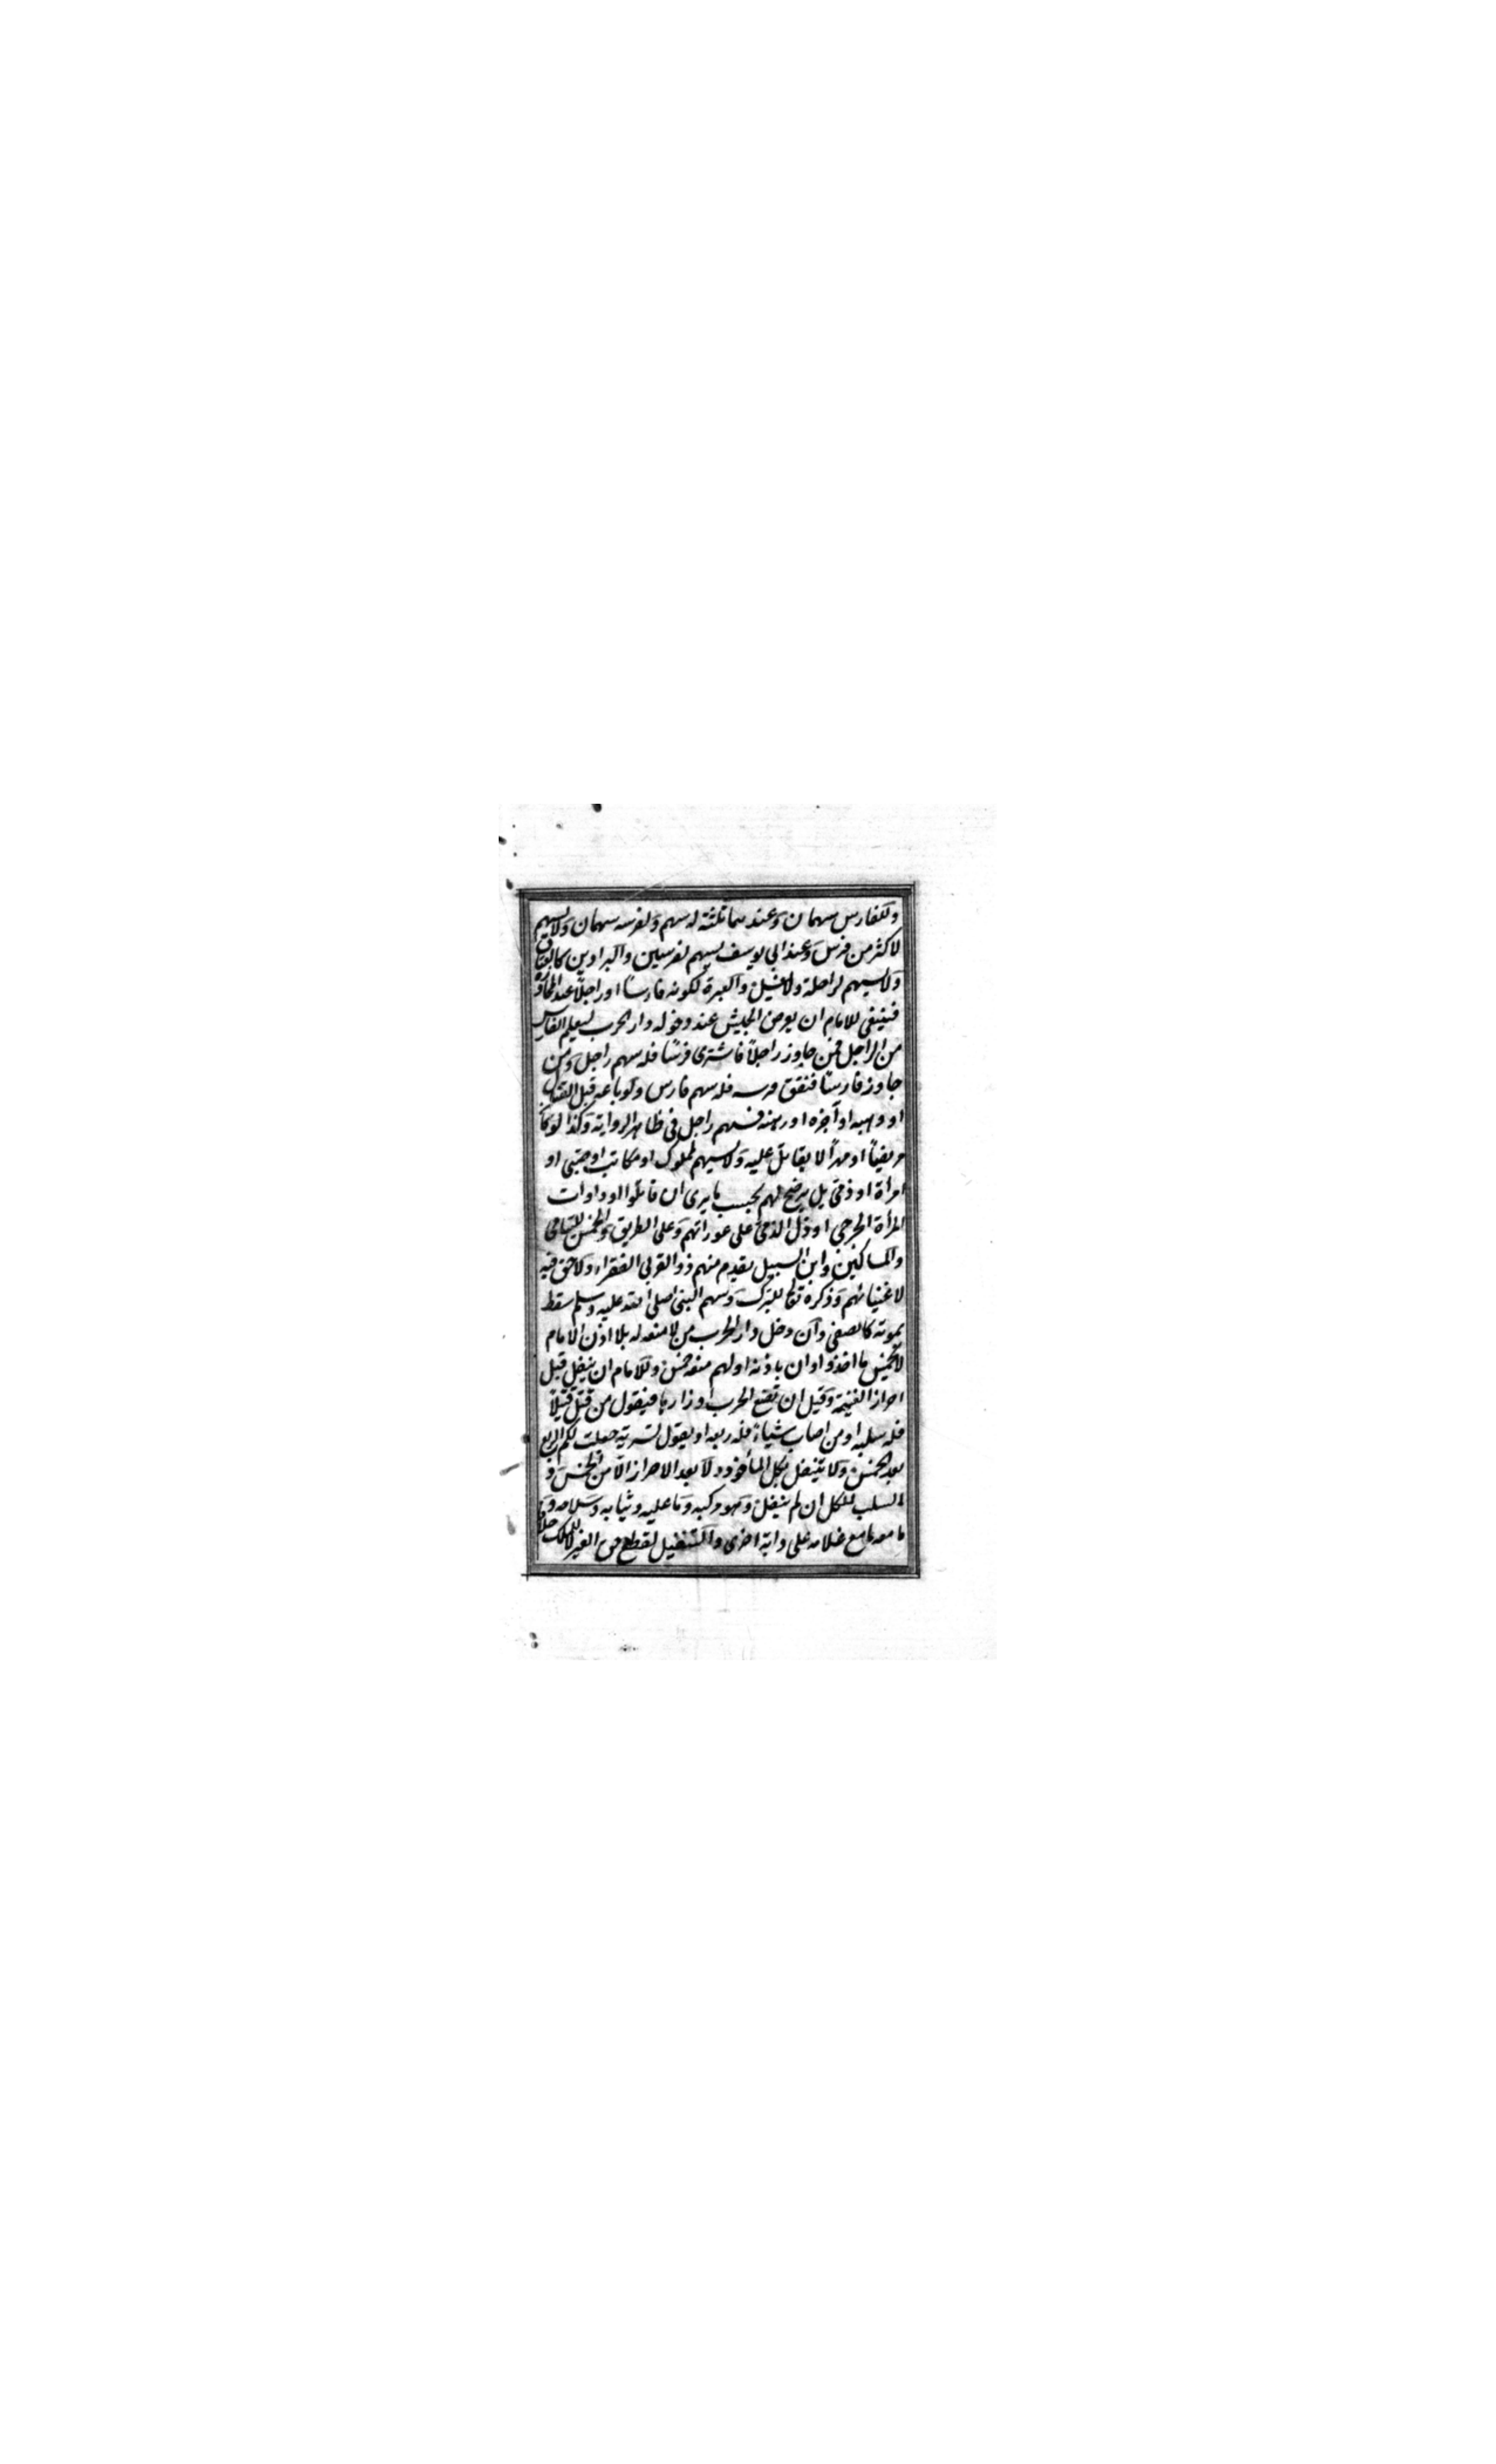 وللفارس سهمان وعندهما ثلثة له سهم ولفرسه سهمان ولا يسهم
لاكثر من فرس وعند ابي يوسف يسهم لفرسين والبراذين كالعتاق
ولا يسهم لراحلة ولا بغل والعبرة لكونه فارسا او راجلا عند المجاوزة
فينبغي للامام ان يعرض الجيش عند دخوله دار الحرب ليعلم الفارس
من الراجل فمن جاوز راجلا فاشترى فرسا فله سهم راجل ومن
جاوز فارسا فنفق فرسه فله سهم فارس ولو باعه قبل القتال
او وهبه او آجره او رهنه فسهم راجل في ظاهر الرواية وكذا لو كان
مريضا او مهرا لا يقاتل عليه ولا يسهم لمملوك او مكاتب او صبي او
امرأة او ذمي بل يرضخ لهم بحسب ما يرى ان قاتلوا او داوت
المرأة الجرحى او دل الذمي على عوراتهم وعلى الطريق والخمس لليتامى
والمساكين وابن السبيل يقدم منهم ذو القربى الفقراء ولا حق فيه
لاغنيائهم وذكره تعالى للتبرك وسهم النبي صلى الله عليه وسلم سقط
بموته كالصفي وان دخل دار الحرب من لا منعة له بلا اذن الامام
لا يخمس ما اخذوا وان باذنه او لهم منعة خمس وللامام ان ينفل قبل
احراز الغنيمة وقبل ان تضع الحرب اوزارها فيقول من قتل قتيلا
فله سلبه او من اصاب شياء فله ربعه او يقول لسرية جعلت لكم الربع
بعد الخمس ولا ينفل بكل المأخوذ ولا بعد الاحراز الا من الخمس و
السلب للكل ان لم ينفل وهو مركبه وما عليه وثيابه وسلاحه و
ما معه لا مع غلامه على دابة اخرى والتنفيل لقطع حق الغير لا للملك خلافا